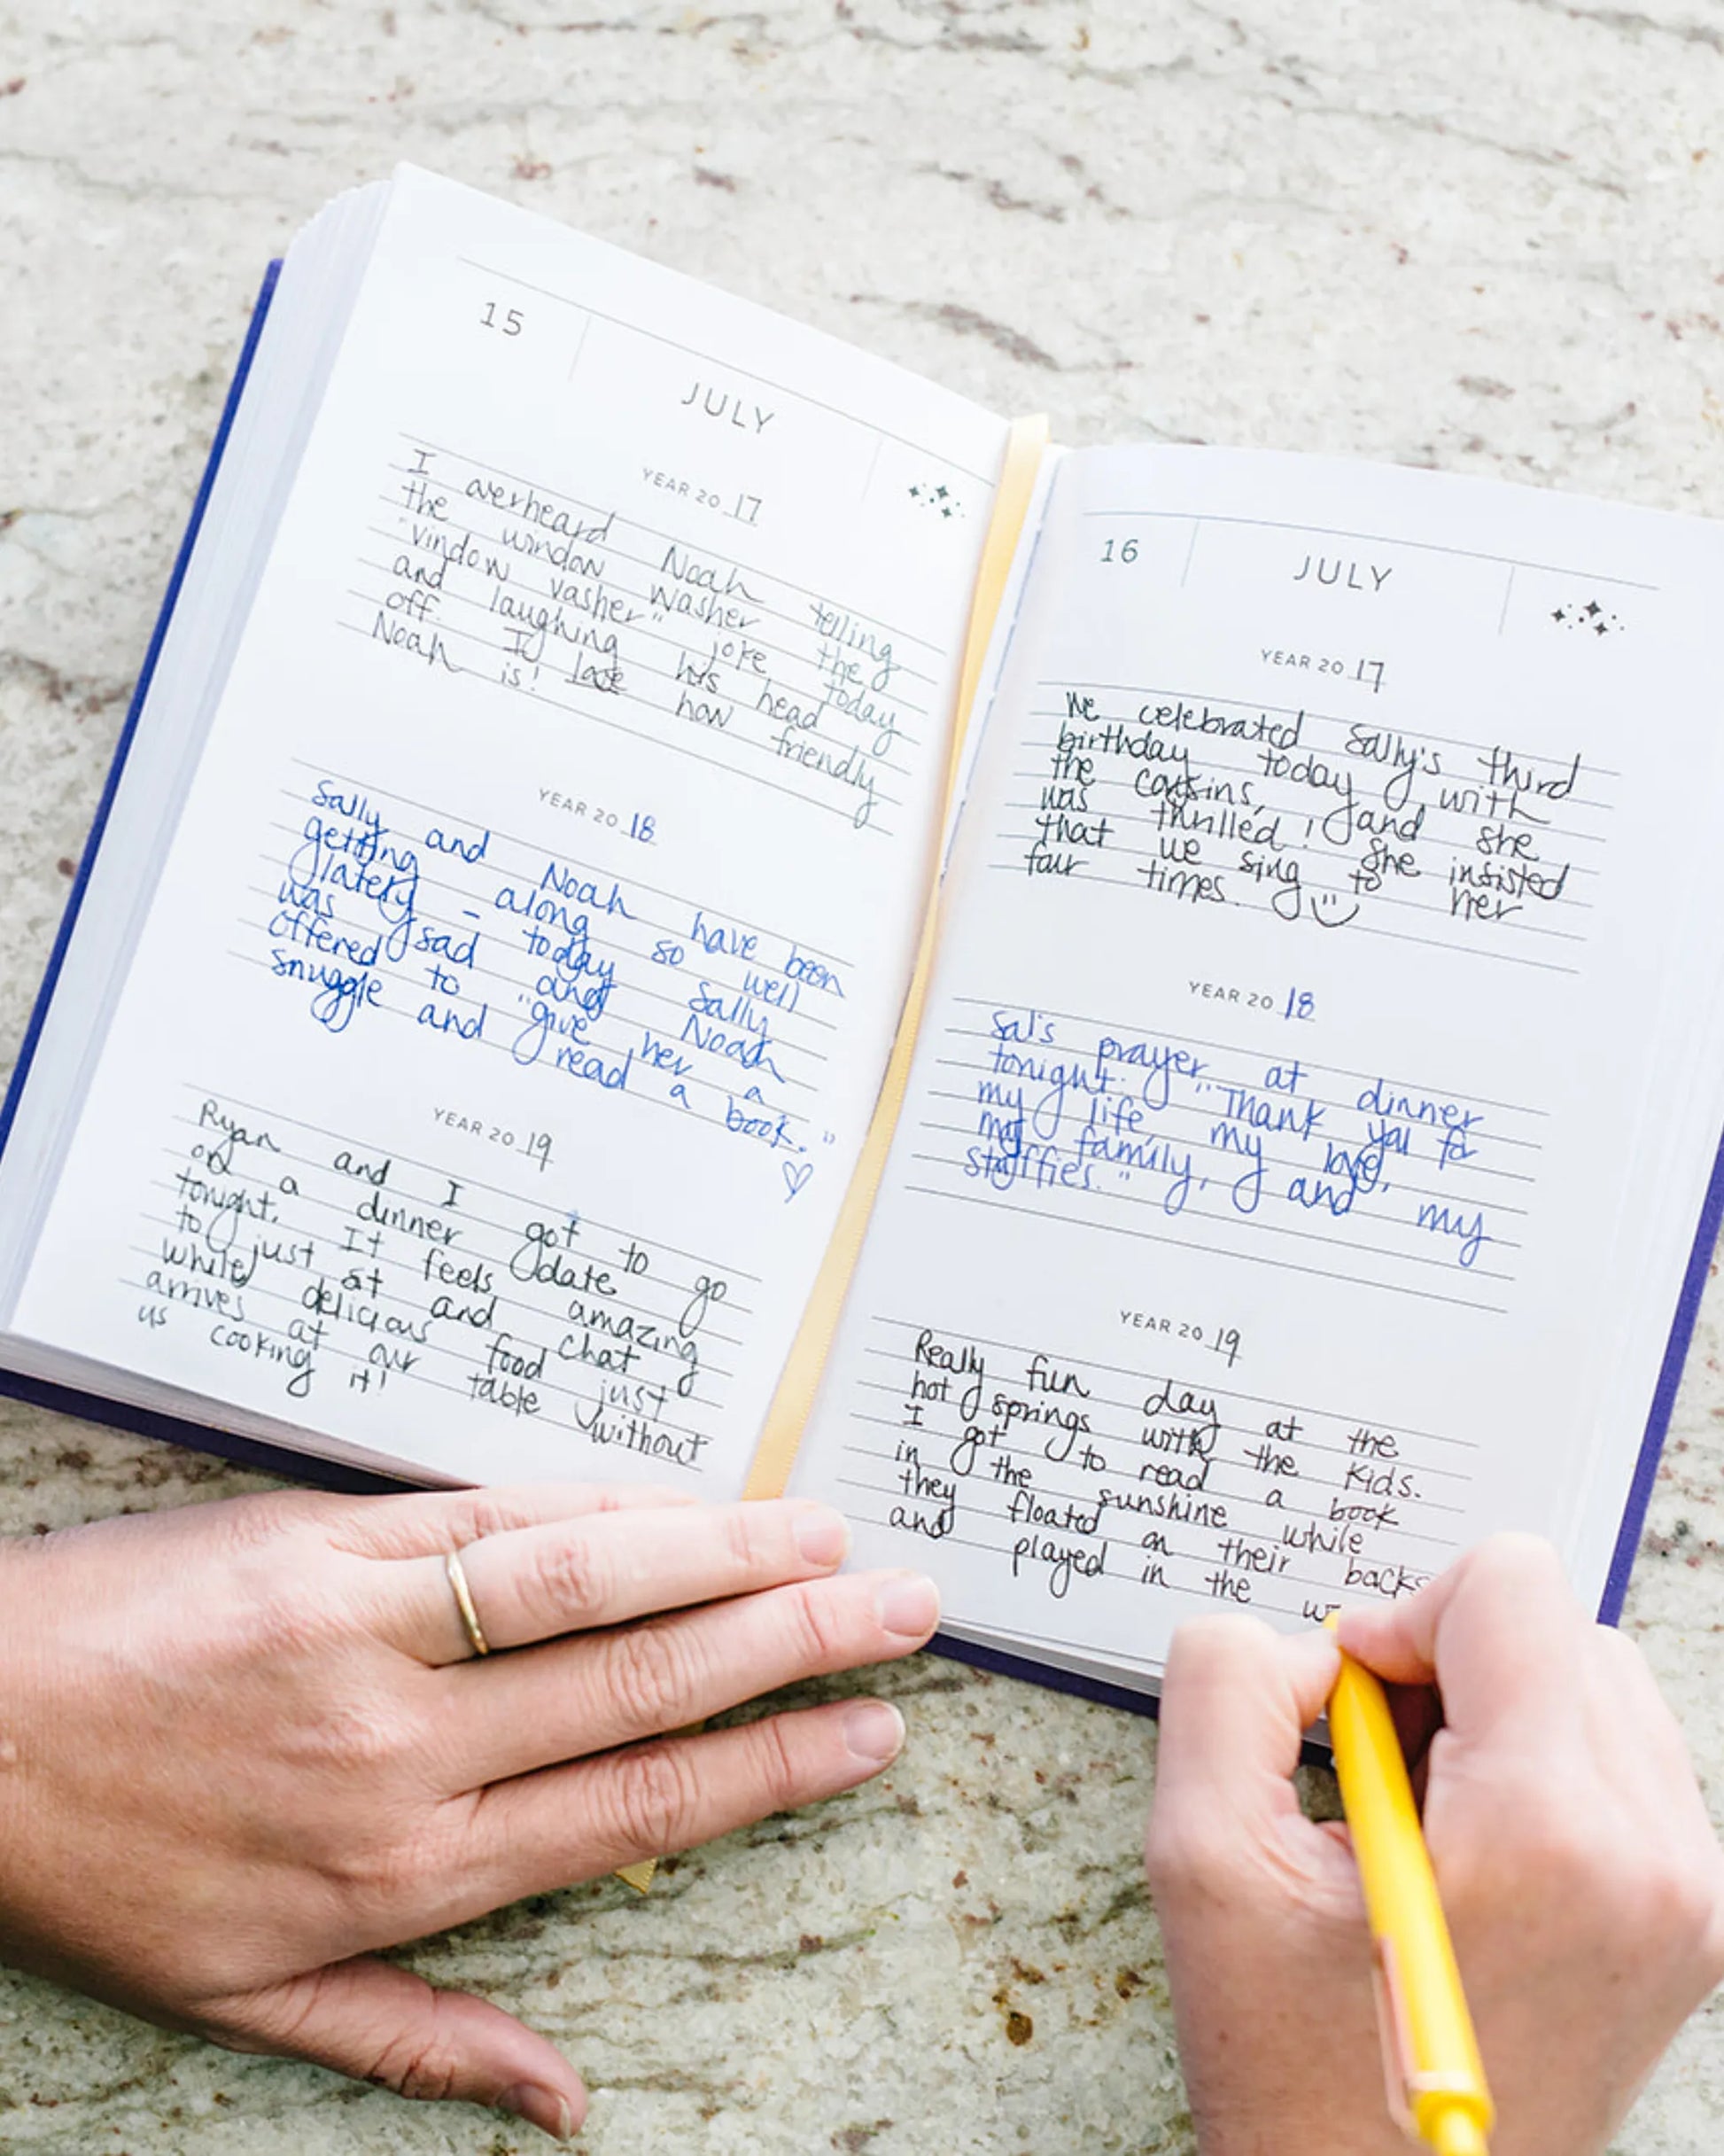 15
JULY
YEAR 20 17
I overheard Noah telling
the window washer the
"vindow vasher" joke today
and laughing his head
off. I love how friendly
Noah is!
YEAR 20 18
Sally and Noah have been
getting along so well
lately - today Sally
was sad and Noah
offered to "give her a
snuggle and read a book."
YEAR 20 19
Ryan and I got to go
on a dinner date
tonight. It feels amazing
to just sit and chat
while delicious food just
arrives at our table without
us cooking it!
16
JULY
YEAR 20 17
We celebrated Sally's third
birthday today with
the cousins, and she
was thrilled! She insisted
that we sing to her
four times.
YEAR 20 18
Sal's prayer at dinner
tonight: "Thank you for
my life, my love,
my family, and my
stuffies."
YEAR 20 19
Really fun day at the
hot springs with the kids.
I got to read a book
in the sunshine while
they floated on their backs
and played in the